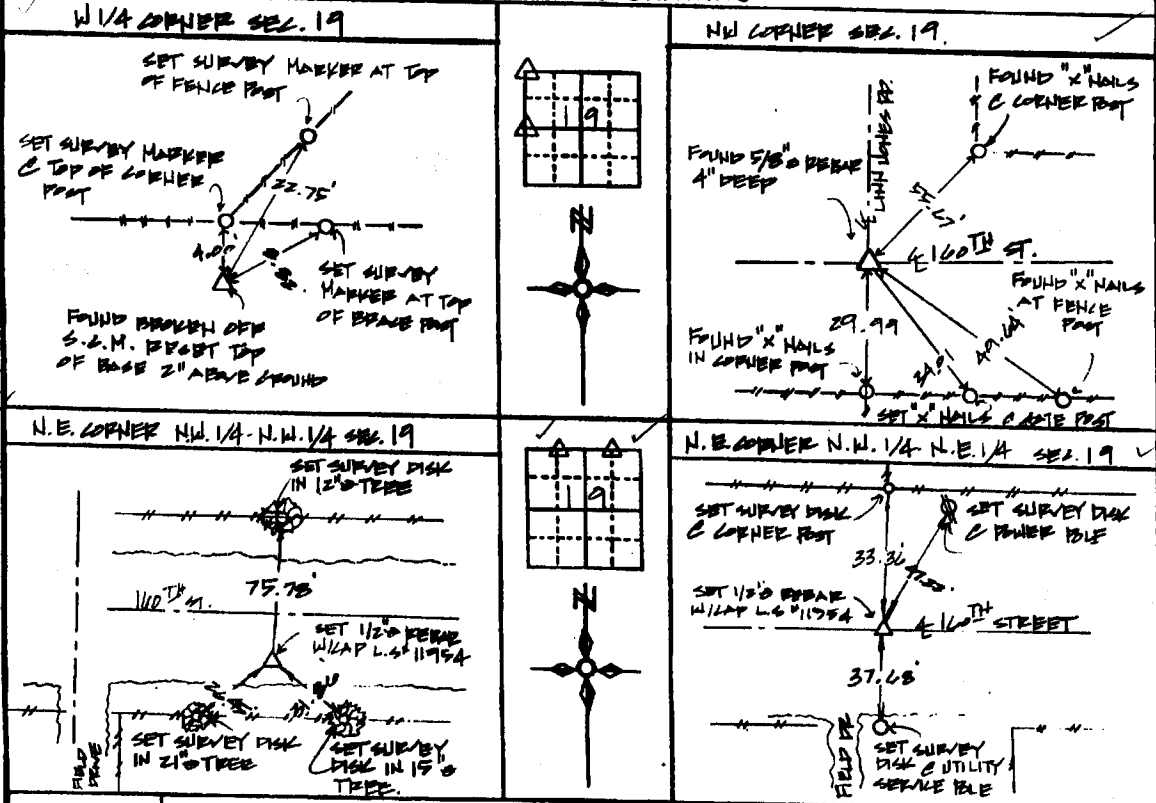 W 1/4 CORNER SEC. 19
SET SURVEY MARKER AT TOP
OF FENCE POST
SET SURVEY MARKER
@ TOP OF CORNER
POST
22.75'
4.00'
SET SURVEY
MARKER AT TOP
OF BRACE POST
FOUND BROKEN OFF
S.L.M. RESET TOP
OF BASE 2" ABOVE GROUND
19
N
NW CORNER SEC. 19.
FOUND "X" NAILS
@ CORNER POST
LINN JONES RD.
FOUND 5/8"ø REBAR
4" DEEP
55.67'
℄ 160TH ST.
FOUND "X" NAILS
AT FENCE
POST
29.99
49.64'
FOUND "X" NAILS
IN CORNER POST
SET "X" NAILS @ GATE POST
N.E. CORNER N.W. 1/4 - N.W. 1/4 SEC. 19
SET SURVEY DISK
IN 12"ø TREE
75.78'
160TH ST.
SET 1/2"ø REBAR
W/CAP L.S. #11954
SET SURVEY DISK
IN 21"ø TREE
SET SURVEY
DISK IN 15"ø
TREE.
FIELD
DRIVE
19
N
N.E. CORNER N.W. 1/4 - N.E. 1/4 SEC. 19
SET SURVEY DISK
@ CORNER POST
SET SURVEY DISK
@ POWER POLE
33.36'
SET 1/2"ø REBAR
W/CAP L.S. #11954
℄ 160TH STREET
37.68'
FIELD DR
SET SURVEY
DISK @ UTILITY
SERVICE POLE